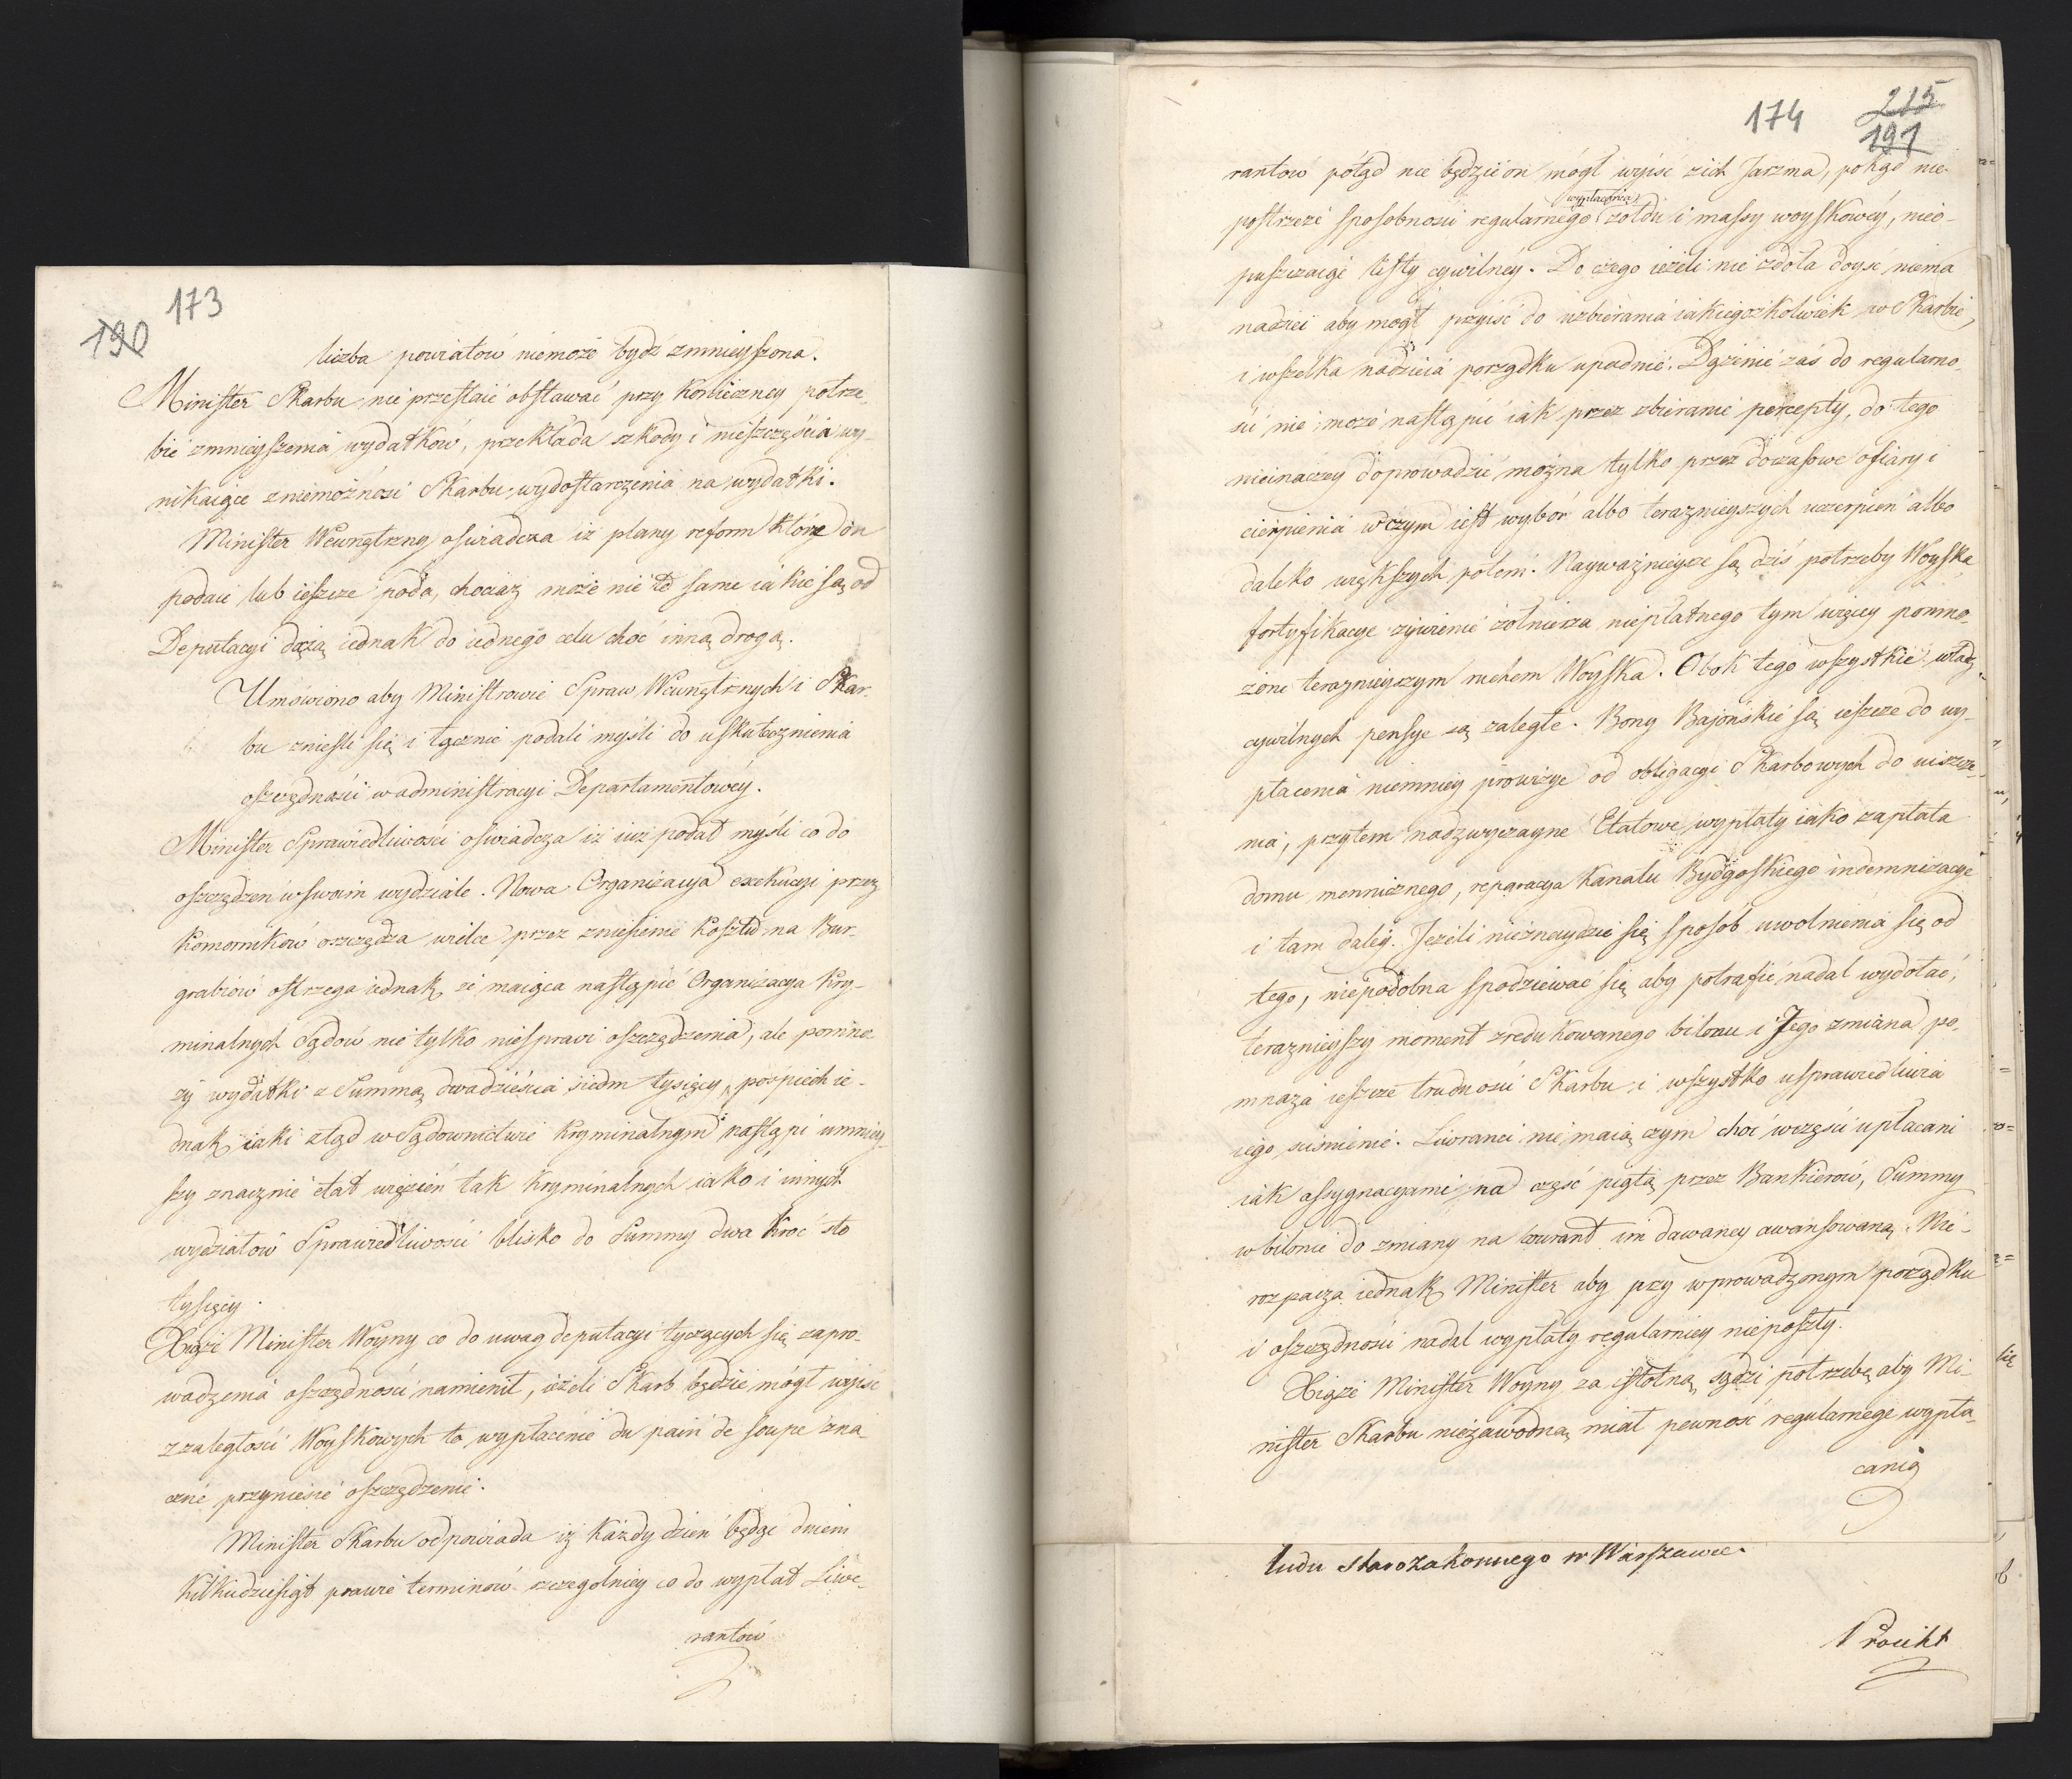 173
190
liczba powiatów niemoże bydz zmnieyszona.
Minister Skarbu nie przestaie obstawać przy konieczney potrze-
bie zmnieyszenia wydatków, przekłada szkody i nieszczęścia wy-
nikaiące zniemożnosci Skarbu wydostarczenia na wydatki.
Minister Wewnętrzny oswiadcza iż plany reform które on
podaie lub ieszcze poda, chociaż może nie te same iakie są od
Deputacyi dążą iednak do iednego celu choć inną drogą.
Umówiono aby Ministrowie Spraw Wewnętrznych i Skar-
bu znieśli się i łącznie podali myśli do uskutecznienia
oszczędności w administracyi Departamentowéy.
Minister Sprawiedliwości oświadcza iż iuż podał myśli co do
oszczędzeń w swoim wydziale. Nowa Organizacya exekucyi przez
Komorników oszczędza wiele przez zniesienie kosztu na Bur-
grabiów ostrzega iednak, że maiąca nastąpić Organizacya Kry-
minalnych Sądów nie tylko niesprawi oszczędzenia, ale pomno-
ży wydatki z Summą dwadzieścia siedm tysięcy, pośpiech ie-
dnak iaki ztąd w Sądownictwie Kryminalnym nastąpi umniey-
szy znacznie etat więzień tak kryminalnych iako i innych
wydziałów Sprawiedliwości blisko do Summy dwa kroć sto
tysięcy.
Xiąże Minister Woyny co do uwag deputacyi tyczących się zapro-
wadzenia oszczędności namienił, ieżeli Skarb będzie mógł wyiść
z zaległości Woyskowych to wypłacenie du pain de soupe zna-
czne przyniesie oszczędzenie.
Minister Skarbu odpowiada iż każdy dzień będąc dniem
kilkudziesiąt prawie terminów szczególniey co do wypłat Liwe-
rantów
174
215
191
rantów póżąd nie będzie on mógł wyiść z ich Jarzma, pokąd nie-
postrzeże sposobności regularnego wypłacania żołdu i massy woyskowéy, nieo-
puszczaiąc listy cywilnéy. Do czego ieżeli nie zdoła doyść niema
nadziei aby mógł przyiść do uzbierania iakiegożkolwiek w Skarbie,
i wszelka nadzieia porządku upadnie. Dążenie zaś do regularno-
ści nie może nastąpić iak przez zbieranie percepty, do tego
nieinaczey doprowadzić można tylko przez doczasowe ofiary i
cierpienia w czym iest wybór albo teraznieyszych ucierpień albo
daleko większych potém. Nayważnieysze są dziś potrzeby Woyska
fortyfikacye żywienie żołnierza niepłatnego tym więcey pomno-
żone teraznieyszym ruchem Woyska. Obok tego wszystkie władz
cywilnych pensye są zaległe. Bony Bajońskie są ieszcze do wy-
płacenia niemniey prowizye od obligacyi Skarbowych do uiszcze-
nia, przytem nadzwyczayne Etatowe wypłaty iako zapłata
domu menniczego, reparacya Kanału Bydgoskiego indemnizacye
i tam daléy. Jeżeli nieznaydzie się sposób uwolnienia się od
tego, niepodobna spodziewać się aby potrafić nadal wydołać,
teraznieyszy moment zredukowanego bilonu i Jego zmiana po-
mnaża ieszcze trudności Skarbu i wszystko usprawiedliwia
iego uciśnienie. Liwranci nie maią czym choć w części upłacani
iak assygnacyami na część piątą przez Bankierów, Summy
w bilonie do zmiany na kurant im dawaney awansowaną. Nie-
rozpacza iednak Minister aby przy wprowadzonym porządku
i oszczędności nadal wypłaty regularniey nieposzły.
Xiąże Minister Woyny za istotną sądzi potrzebę aby Mi-
nister Skarbu niezawodną miał pewność regularnego wypła-
cania
ludu starozakonnego w Warszawie.
Proiekt